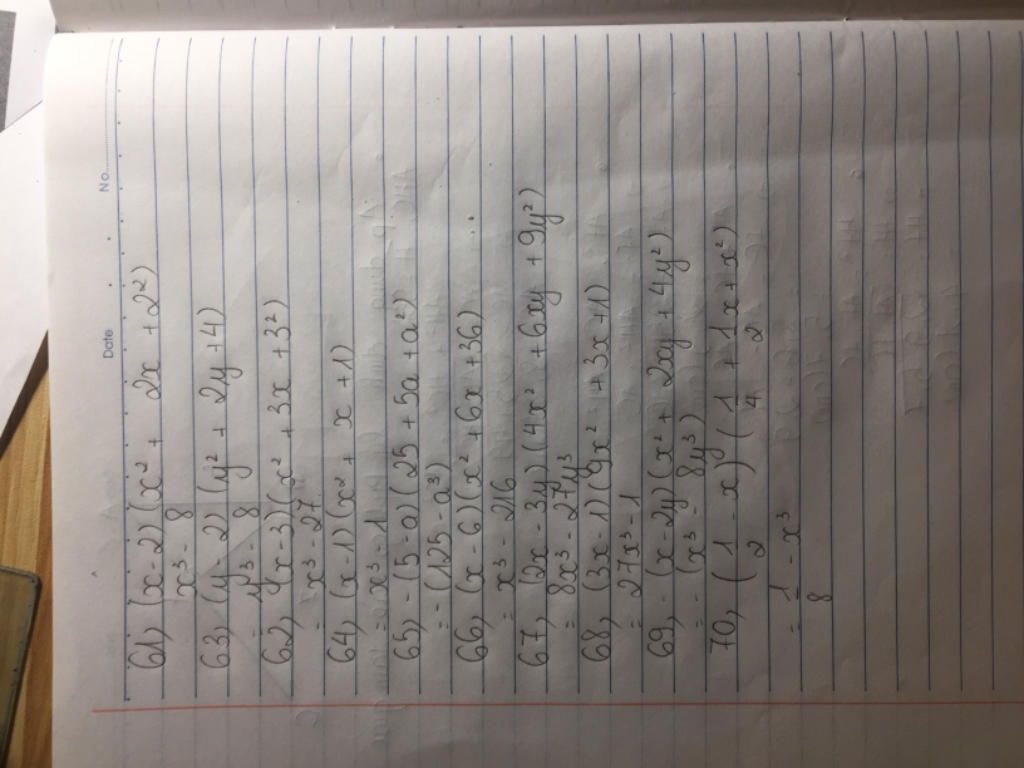 Date
No.
61, (x-2) (x² + 2x + 2²)
x³ - 8
63, (y - 2) (y² + 2y + 4)
= y³ - 8
62, (x-3) (x² + 3x + 3²)
= x³ - 27
64, (x-1) (x² + x + 1)
= x³ - 1
65, - (5-a) (25 + 5a + a²)
= - (125 - a³)
66, (x - 6) (x² + 6x + 36)
= x³ - 216
67, (2x - 3y) (4x² + 6xy + 9y²)
= 8x³ - 27y³
68, (3x - 1) (9x² + 3x + 1)
= 27x³ - 1
69, - (x - 2y) (x² + 2xy + 4y²)
= - (x³ - 8y³)
70, (1/2 - x) (1/4 + 1/2x + x²)
= 1/8 - x³